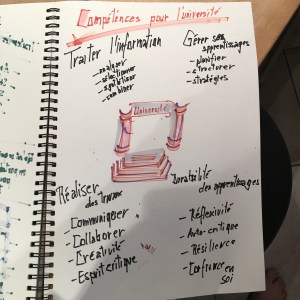 Compétences pour l'université
Traiter l'information
- analyser
- sélectionner
- synthétiser
- combiner
Gérer ses
apprentissages
- planifier
- structurer
- stratégies
Université
Réaliser
des travaux
- Communiquer
- Collaborer
- Créativité
- Esprit critique
Durabilité
des apprentissages
- Réflexivité
- Auto-critique
- Résilience
- Confiance en
soi